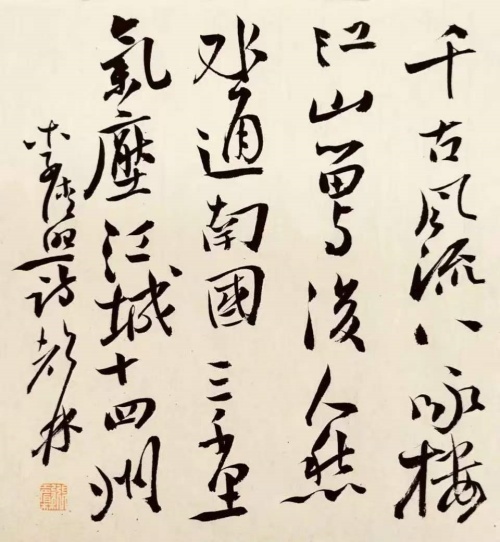 千古风流八咏楼
江山留与後人愁
水通南國三千里
氣壓江城十四州
李清照诗